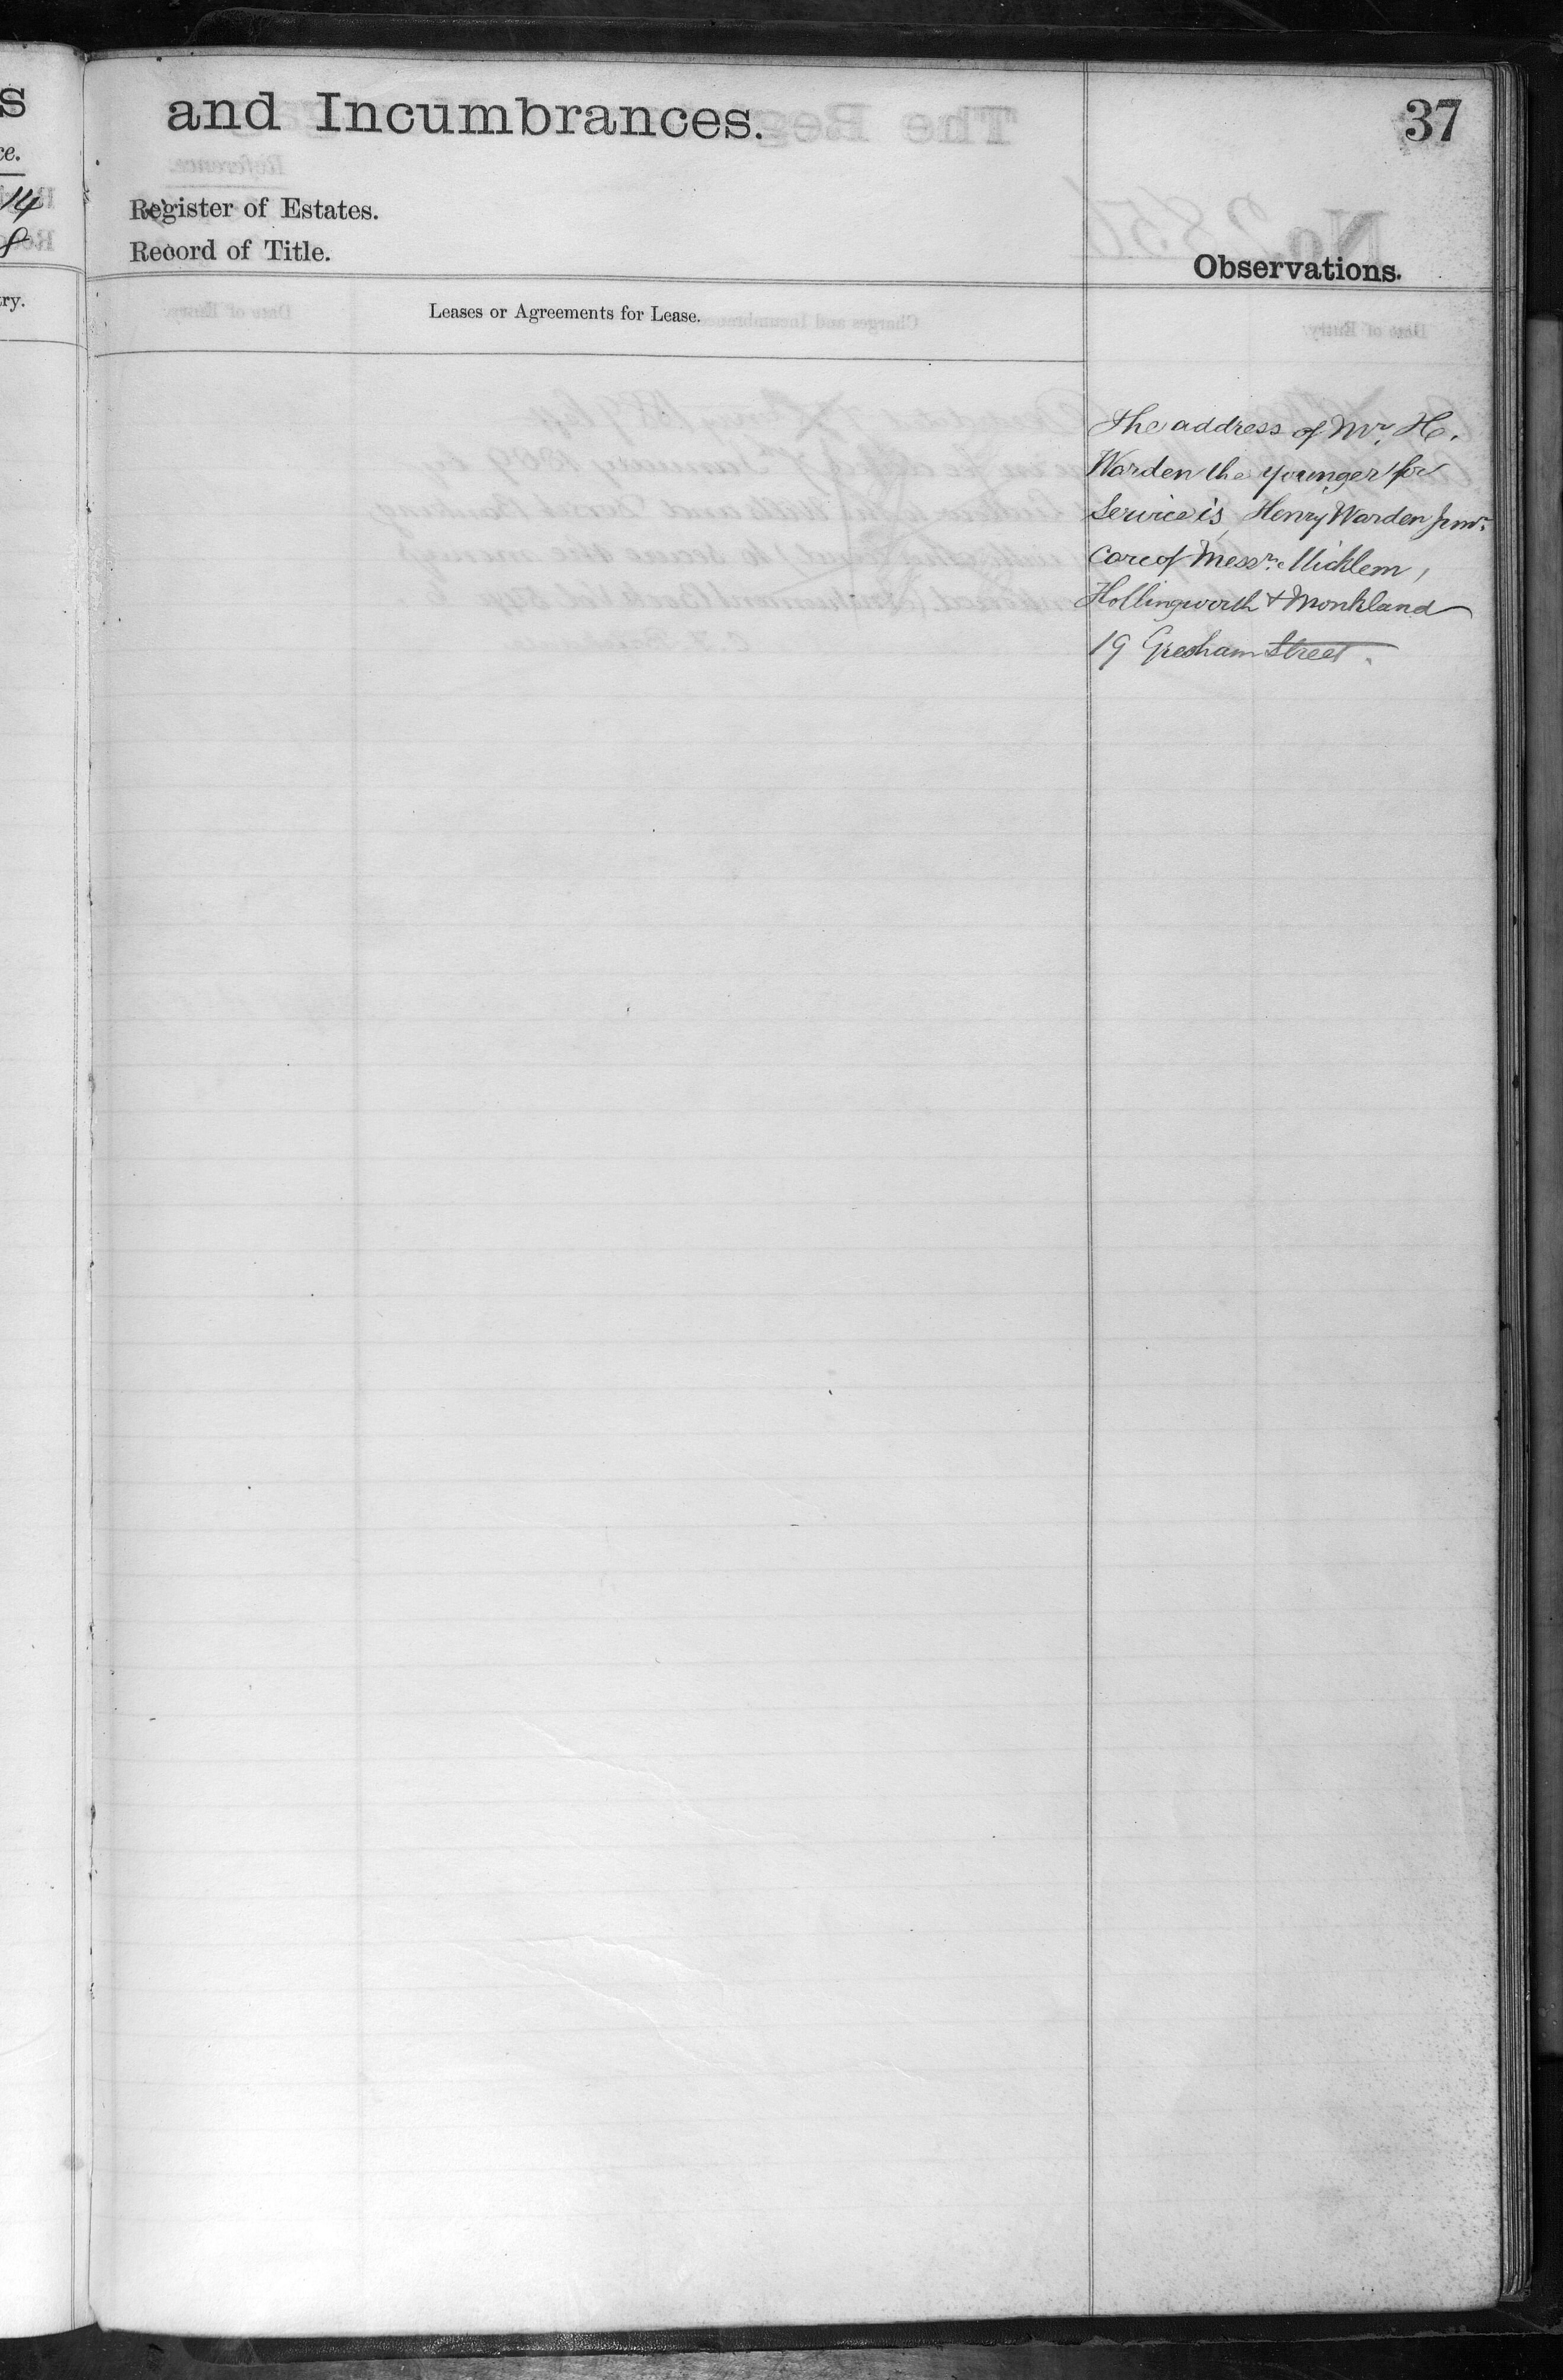 and Incumbrances.
37
Register of Estates.
Record of Title.
Observations.
Leases or Agreements for Lease.
The address of Mr. H.
Warden the younger for
Service is Henry Warden Junr.
Care of Messrs. Micklem,
Hollingworth & Monkland
19 Gresham Street.
s
ce.
14
8
ry.